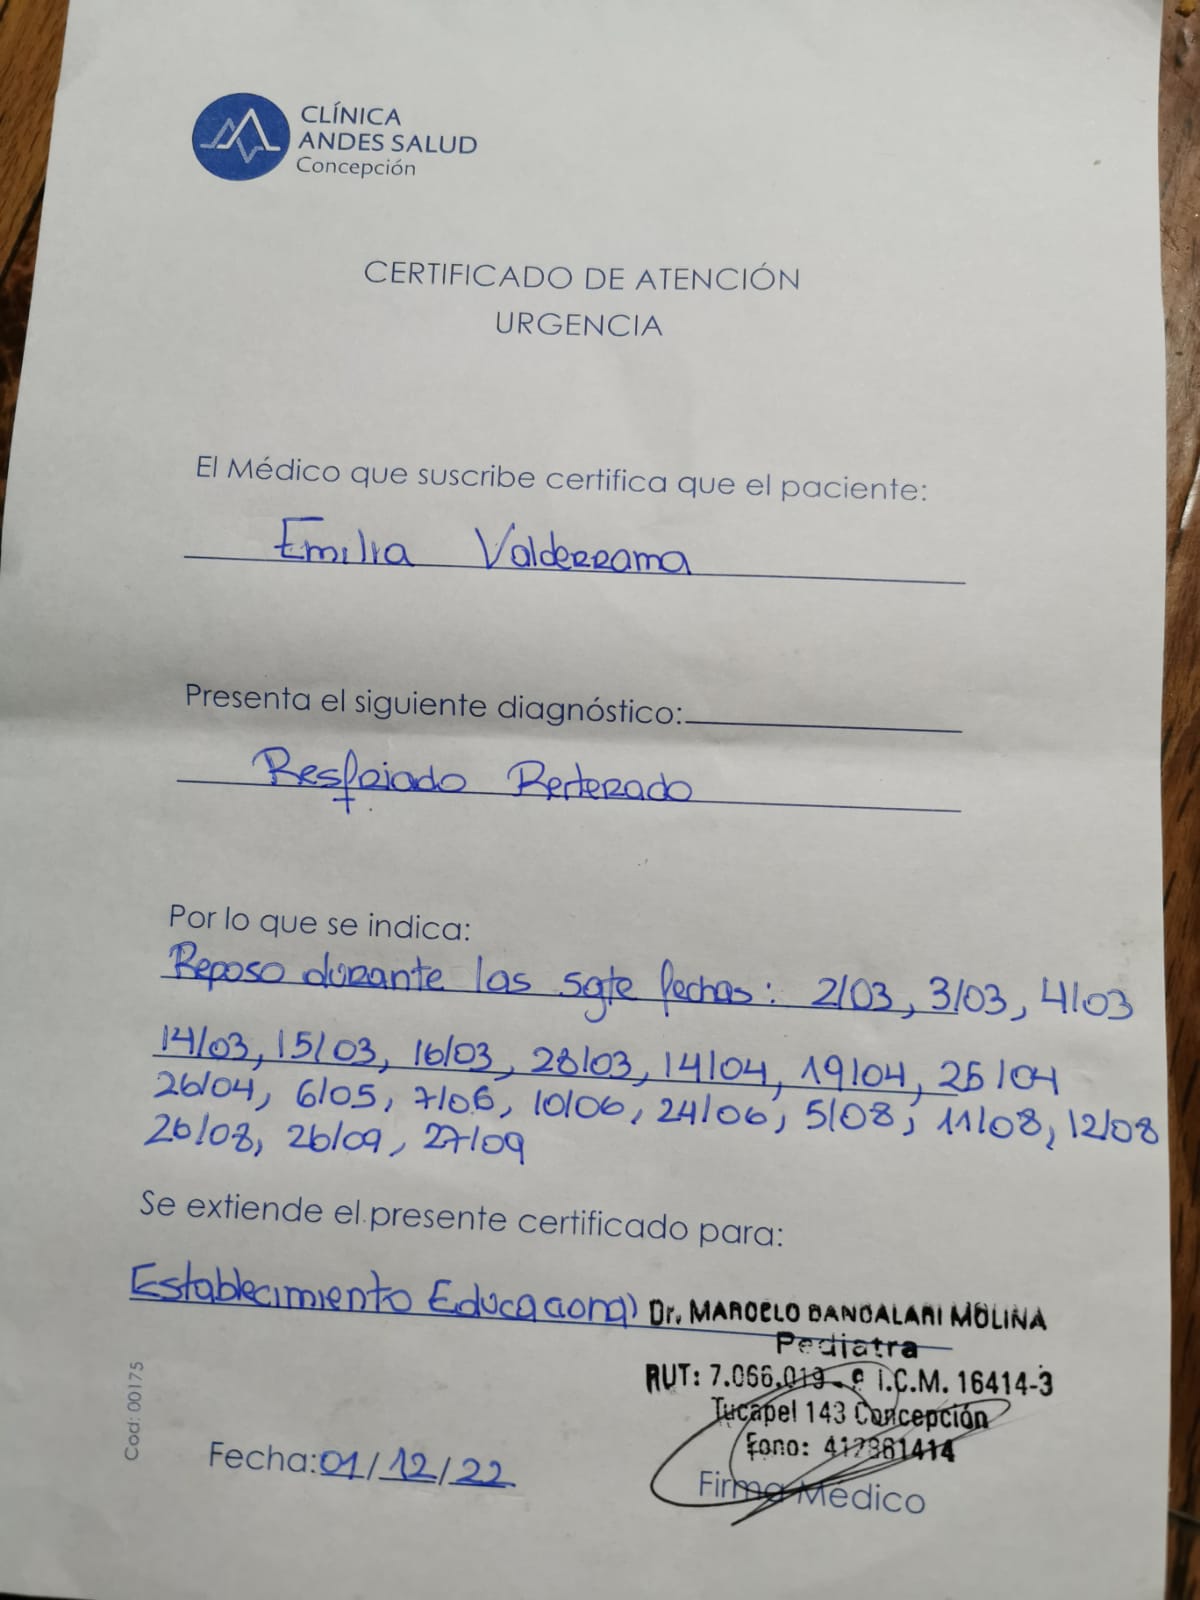 CLÍNICA
ANDES SALUD
Concepción
CERTIFICADO DE ATENCIÓN
URGENCIA
El Médico que suscribe certifica que el paciente:
Emilia Valderrama
Presenta el siguiente diagnóstico:
Resfriado Reiterado
Por lo que se indica:
Reposo durante las sgte fechas: 2/03, 3/03, 4/03
14/03, 15/03, 16/03, 28/03, 14/04, 19/04, 25/04
26/04, 6/05, 7/06, 10/06, 24/06, 5/08, 11/08, 12/08
26/08, 26/09, 27/09
Se extiende el presente certificado para:
Establecimiento Educacional
Dr. MARCELO BANDALARI MOLINA
Pediatra
RUT: 7.066.019 - I.C.M. 16414-3
Tucapel 143 Concepción
Fono: 412861414
Firma Médico
Fecha: 01/12/22
Cod: 00175